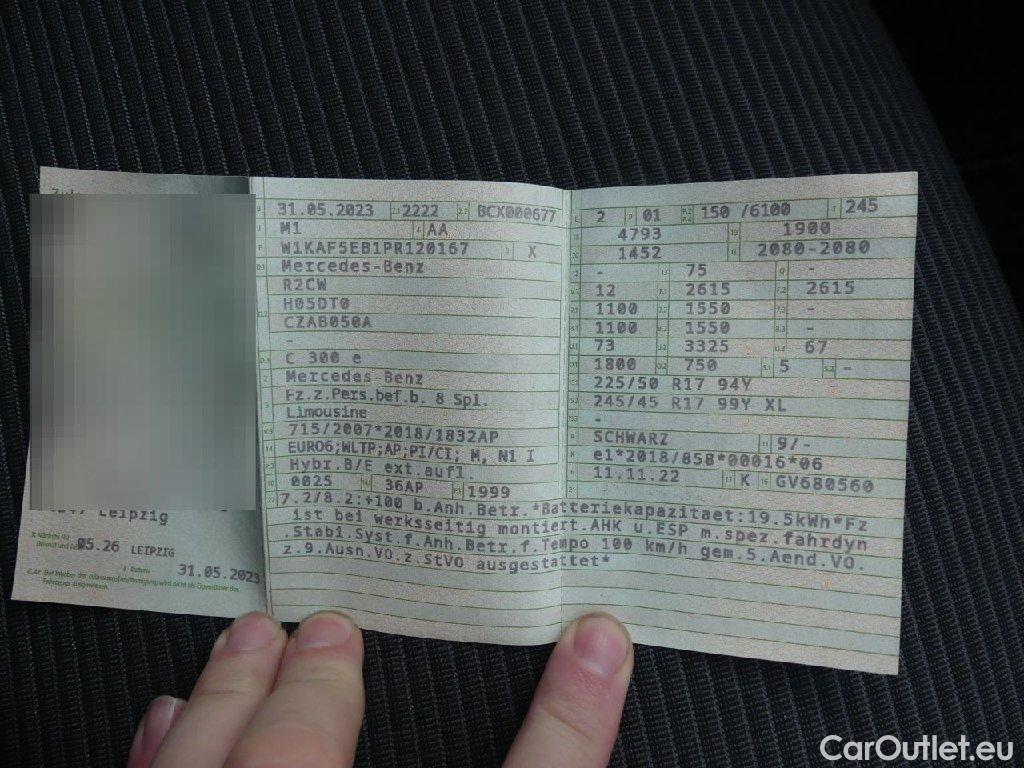 Leipzig
05.26 LEIPZIG
31.05.2023
31.05.2023 2222 BCX000677
M1 AA
W1KAF5EB1PR120167 X
Mercedes-Benz
R2CW
H05DT0
CZAB050A
-
C 300 e
Mercedes-Benz
Fz.z.Pers.bef.b. 8 Spl.
Limousine
715/2007*2018/1832AP
EURO6;WLTP;AP;PI/CI; M, N1 I
Hybr.B/E ext.aufl.
0025 36AP 1999
2 01 150 /6100 245
4793 1900
1452 2080-2080
- 75 -
12 2615 2615
1100 1550 -
1100 1550 -
73 3325 67
1800 750 5 -
225/50 R17 94Y
245/45 R17 99Y XL
-
SCHWARZ 9/-
e1*2018/858*00016*06
11.11.22 K GV680560
7.2/8.2:+100 b.Anh.Betr.*Batteriekapazitaet:19.5kWh*Fz
ist bei werksseitig montiert.AHK u.ESP m.spez.fahrdyn
.Stabi.Syst f.Anh.Betr.f.Tempo 100 km/h gem.5.Aend.VO.
z.9.Ausn.VO.z.StVO ausgestattet*
CarOutlet.eu